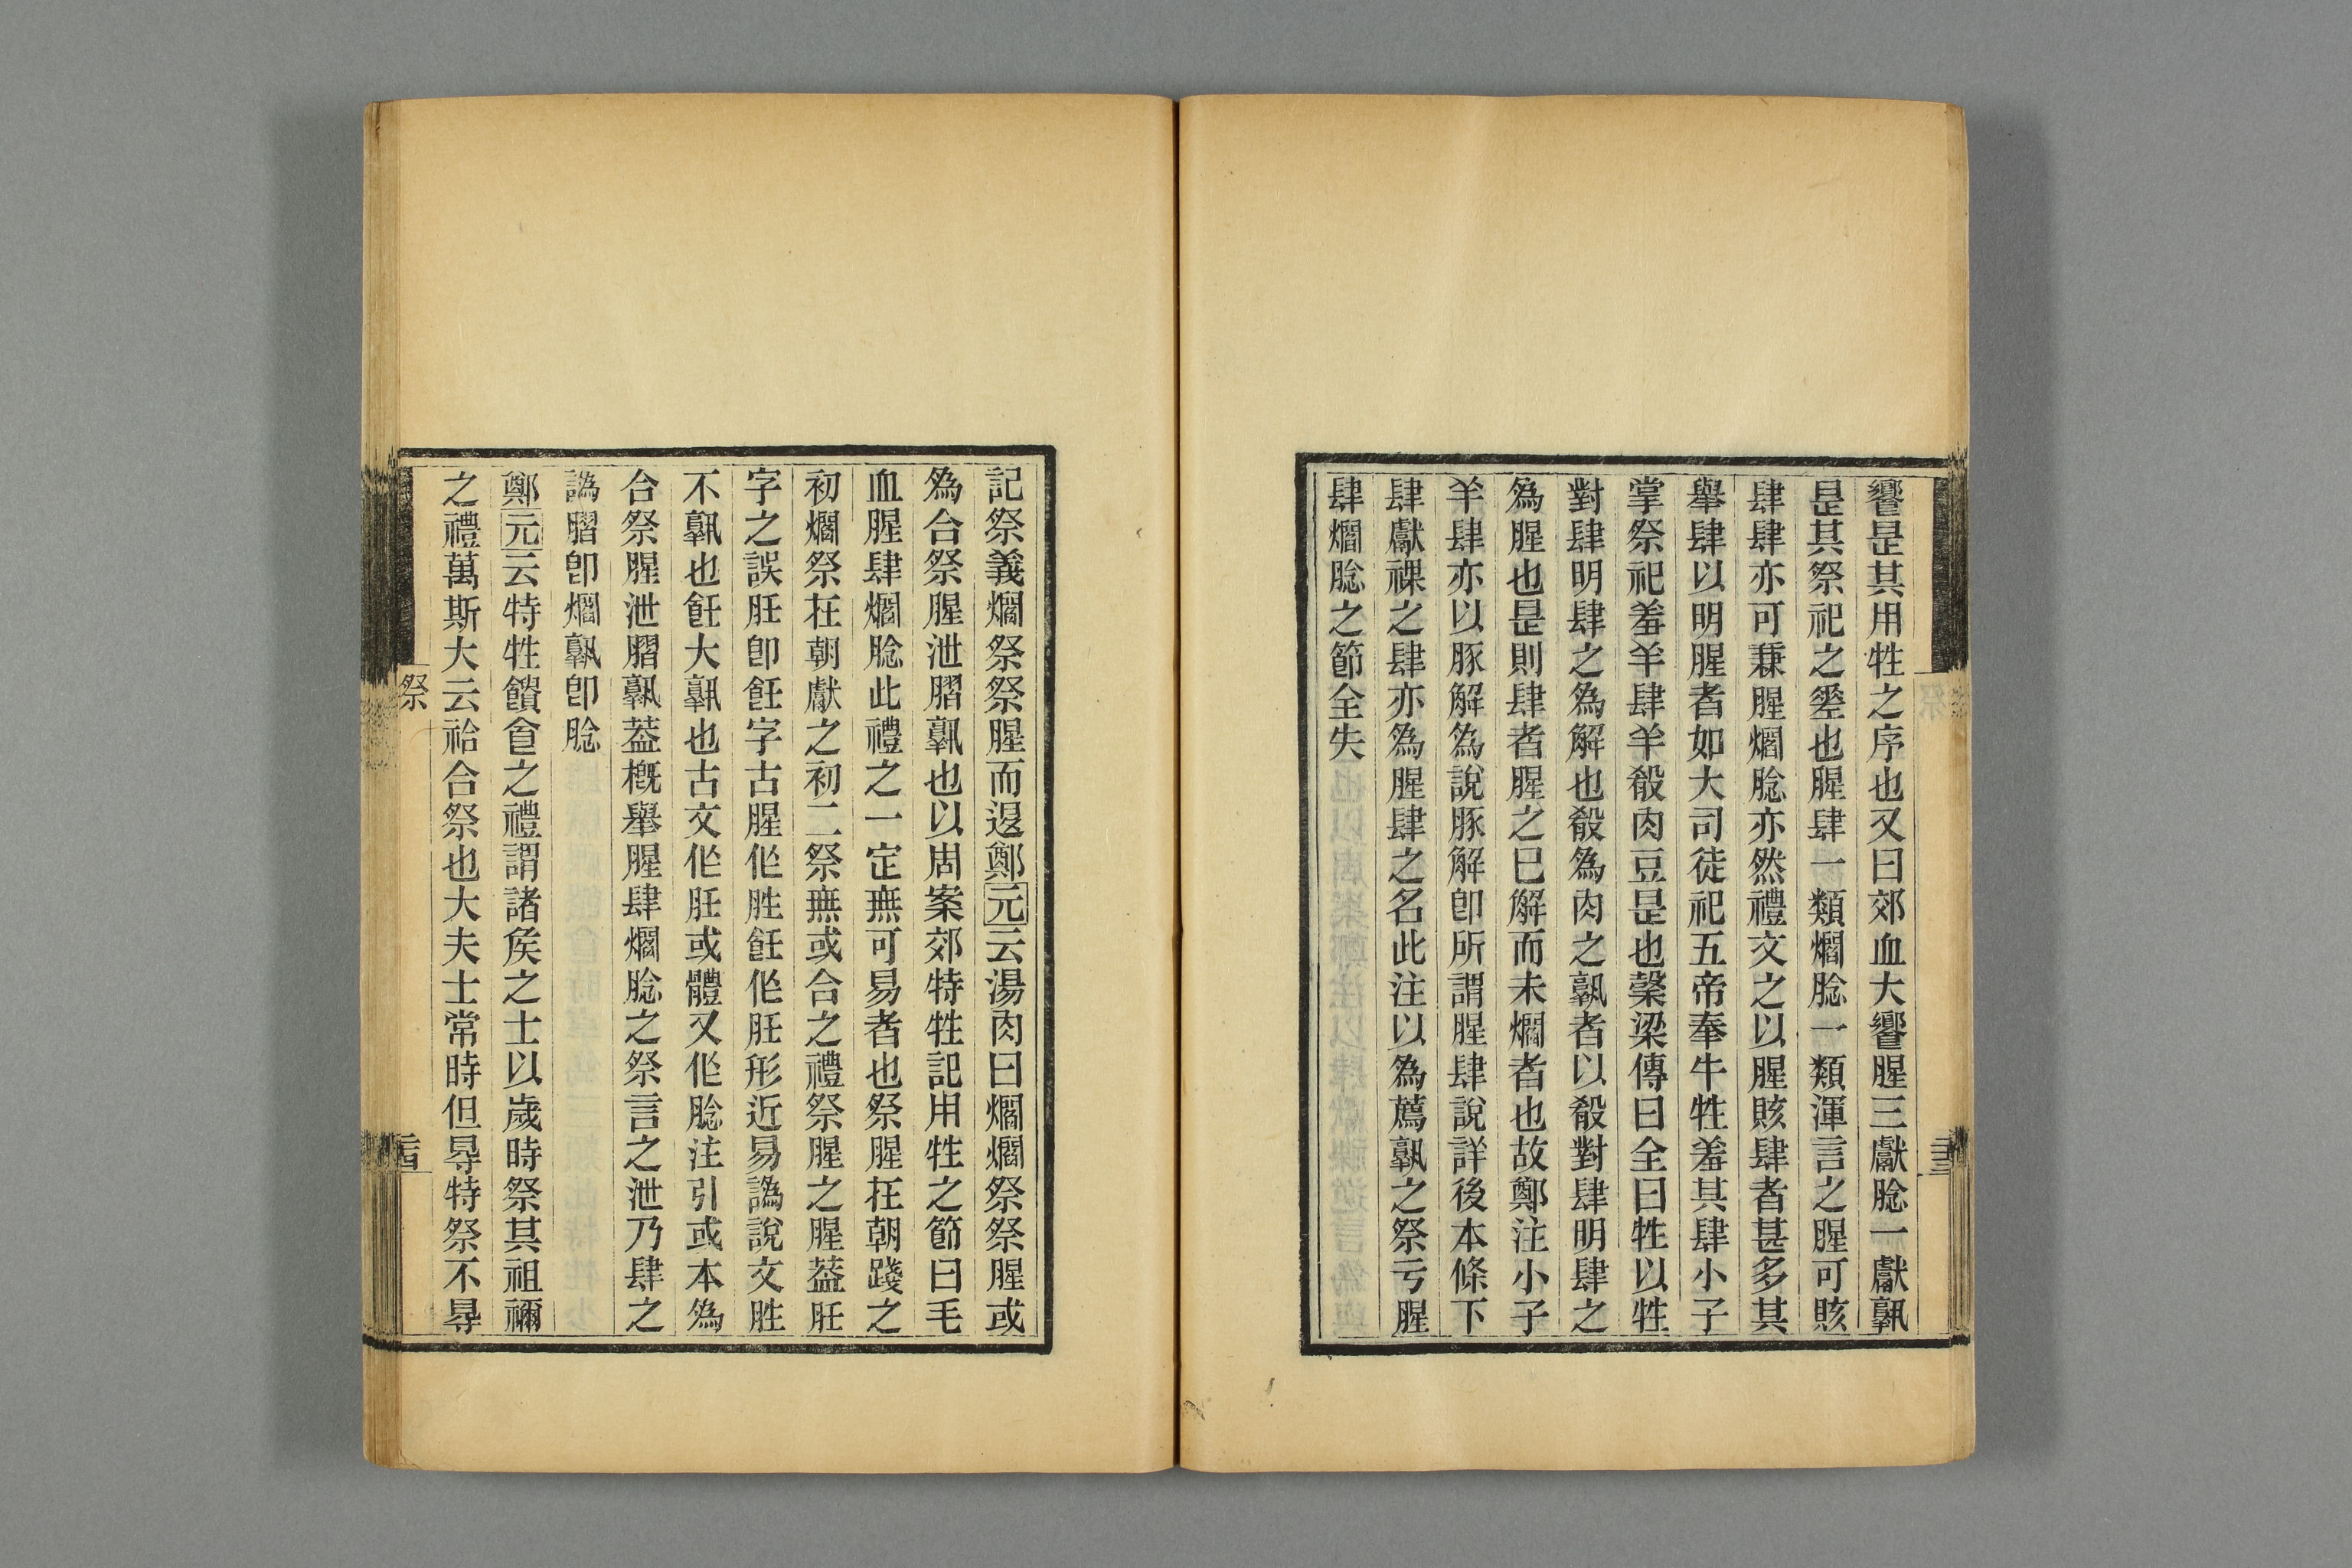 饗是其用牲之序也又曰郊血大饗腥三獻腍一獻孰
是其祭祀之𢀩也腥肆一類爓腍一類渾言之腥可賅
肆肆亦可兼腥爓腍亦然禮文之以腥賅肆者甚多其
舉肆以明腥者如大司徒祀五帝奉牛牲羞其肆小子
掌祭祀羞羊肆羊殽肉豆是也穀梁傳曰全曰牲以牲
對肆明肆之為解也殽為肉之孰者以殽對肆明肆之
為腥也是則肆者腥之已解而未爓者也故鄭注小子
羊肆亦以豚解為說豚解即所謂腥肆說詳後本條下
肆獻祼之肆亦為腥肆之名此注以為薦孰之祭亏腥
肆爓腍之節全失
記祭義爓祭祭腥而退鄭元云湯肉曰爓爓祭祭腥或
為合祭腥泄膟孰也以周案郊特牲記用牲之節曰毛
血腥肆爓腍此禮之一定無可易者也祭腥在朝踐之
初爓祭在朝獻之初二祭無或合之禮祭腥之腥蓋胜
字之誤胜即飪字古腥作胜飪作胜形近易譌說文胜
不孰也飪大孰也古文作胜或體又作腍注引或本為
合祭腥泄膟孰蓋概舉腥肆爓腍之祭言之泄乃肆之
譌膟即爓孰即腍
鄭元云特牲饋食之禮謂諸侯之士以歲時祭其祖禰
之禮萬斯大云祫合祭也大夫士常時但㝵特祭不㝵
祭